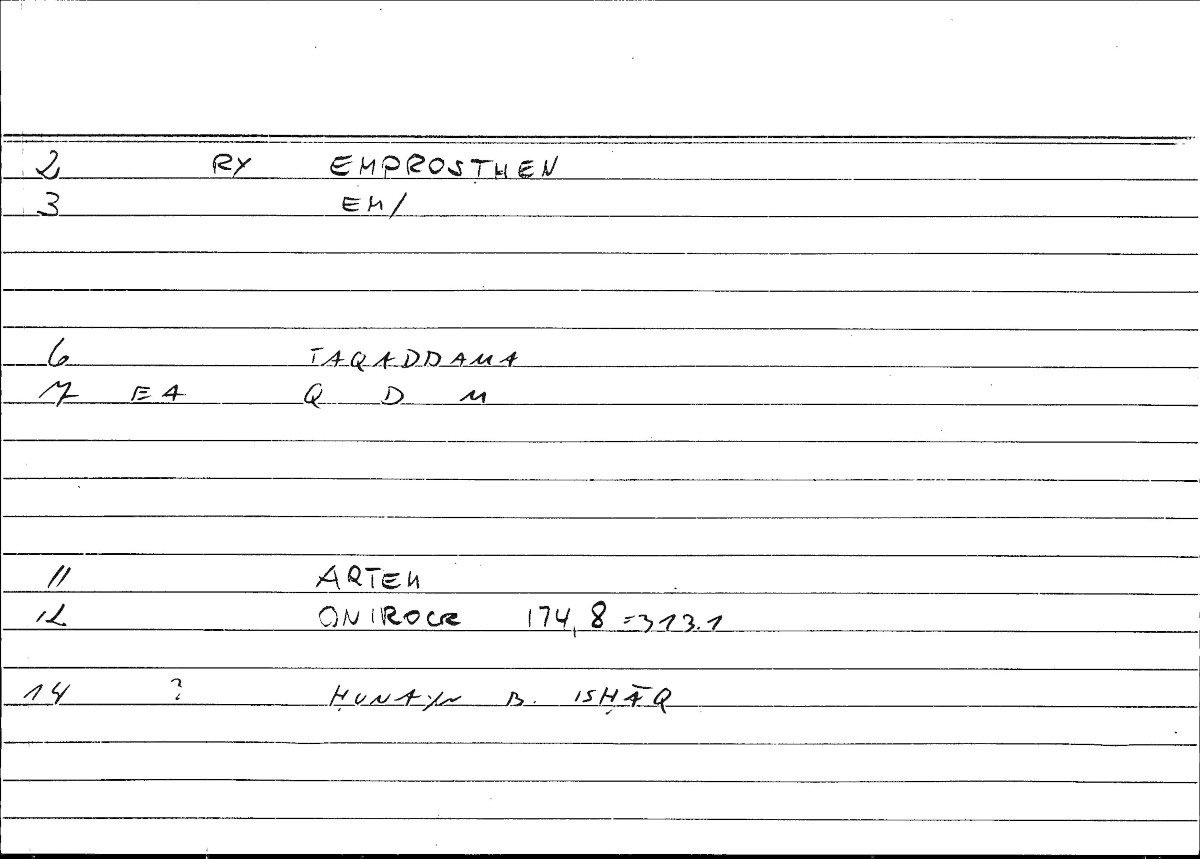 2 RY EMPROSTHEN
3 EM/
6 TAQADDAMA
7 EA Q D M
11 ARTEM
12 ONIROCR 174,8 =313.1
14 ? ḤUNAYN B. ISḤĀQ